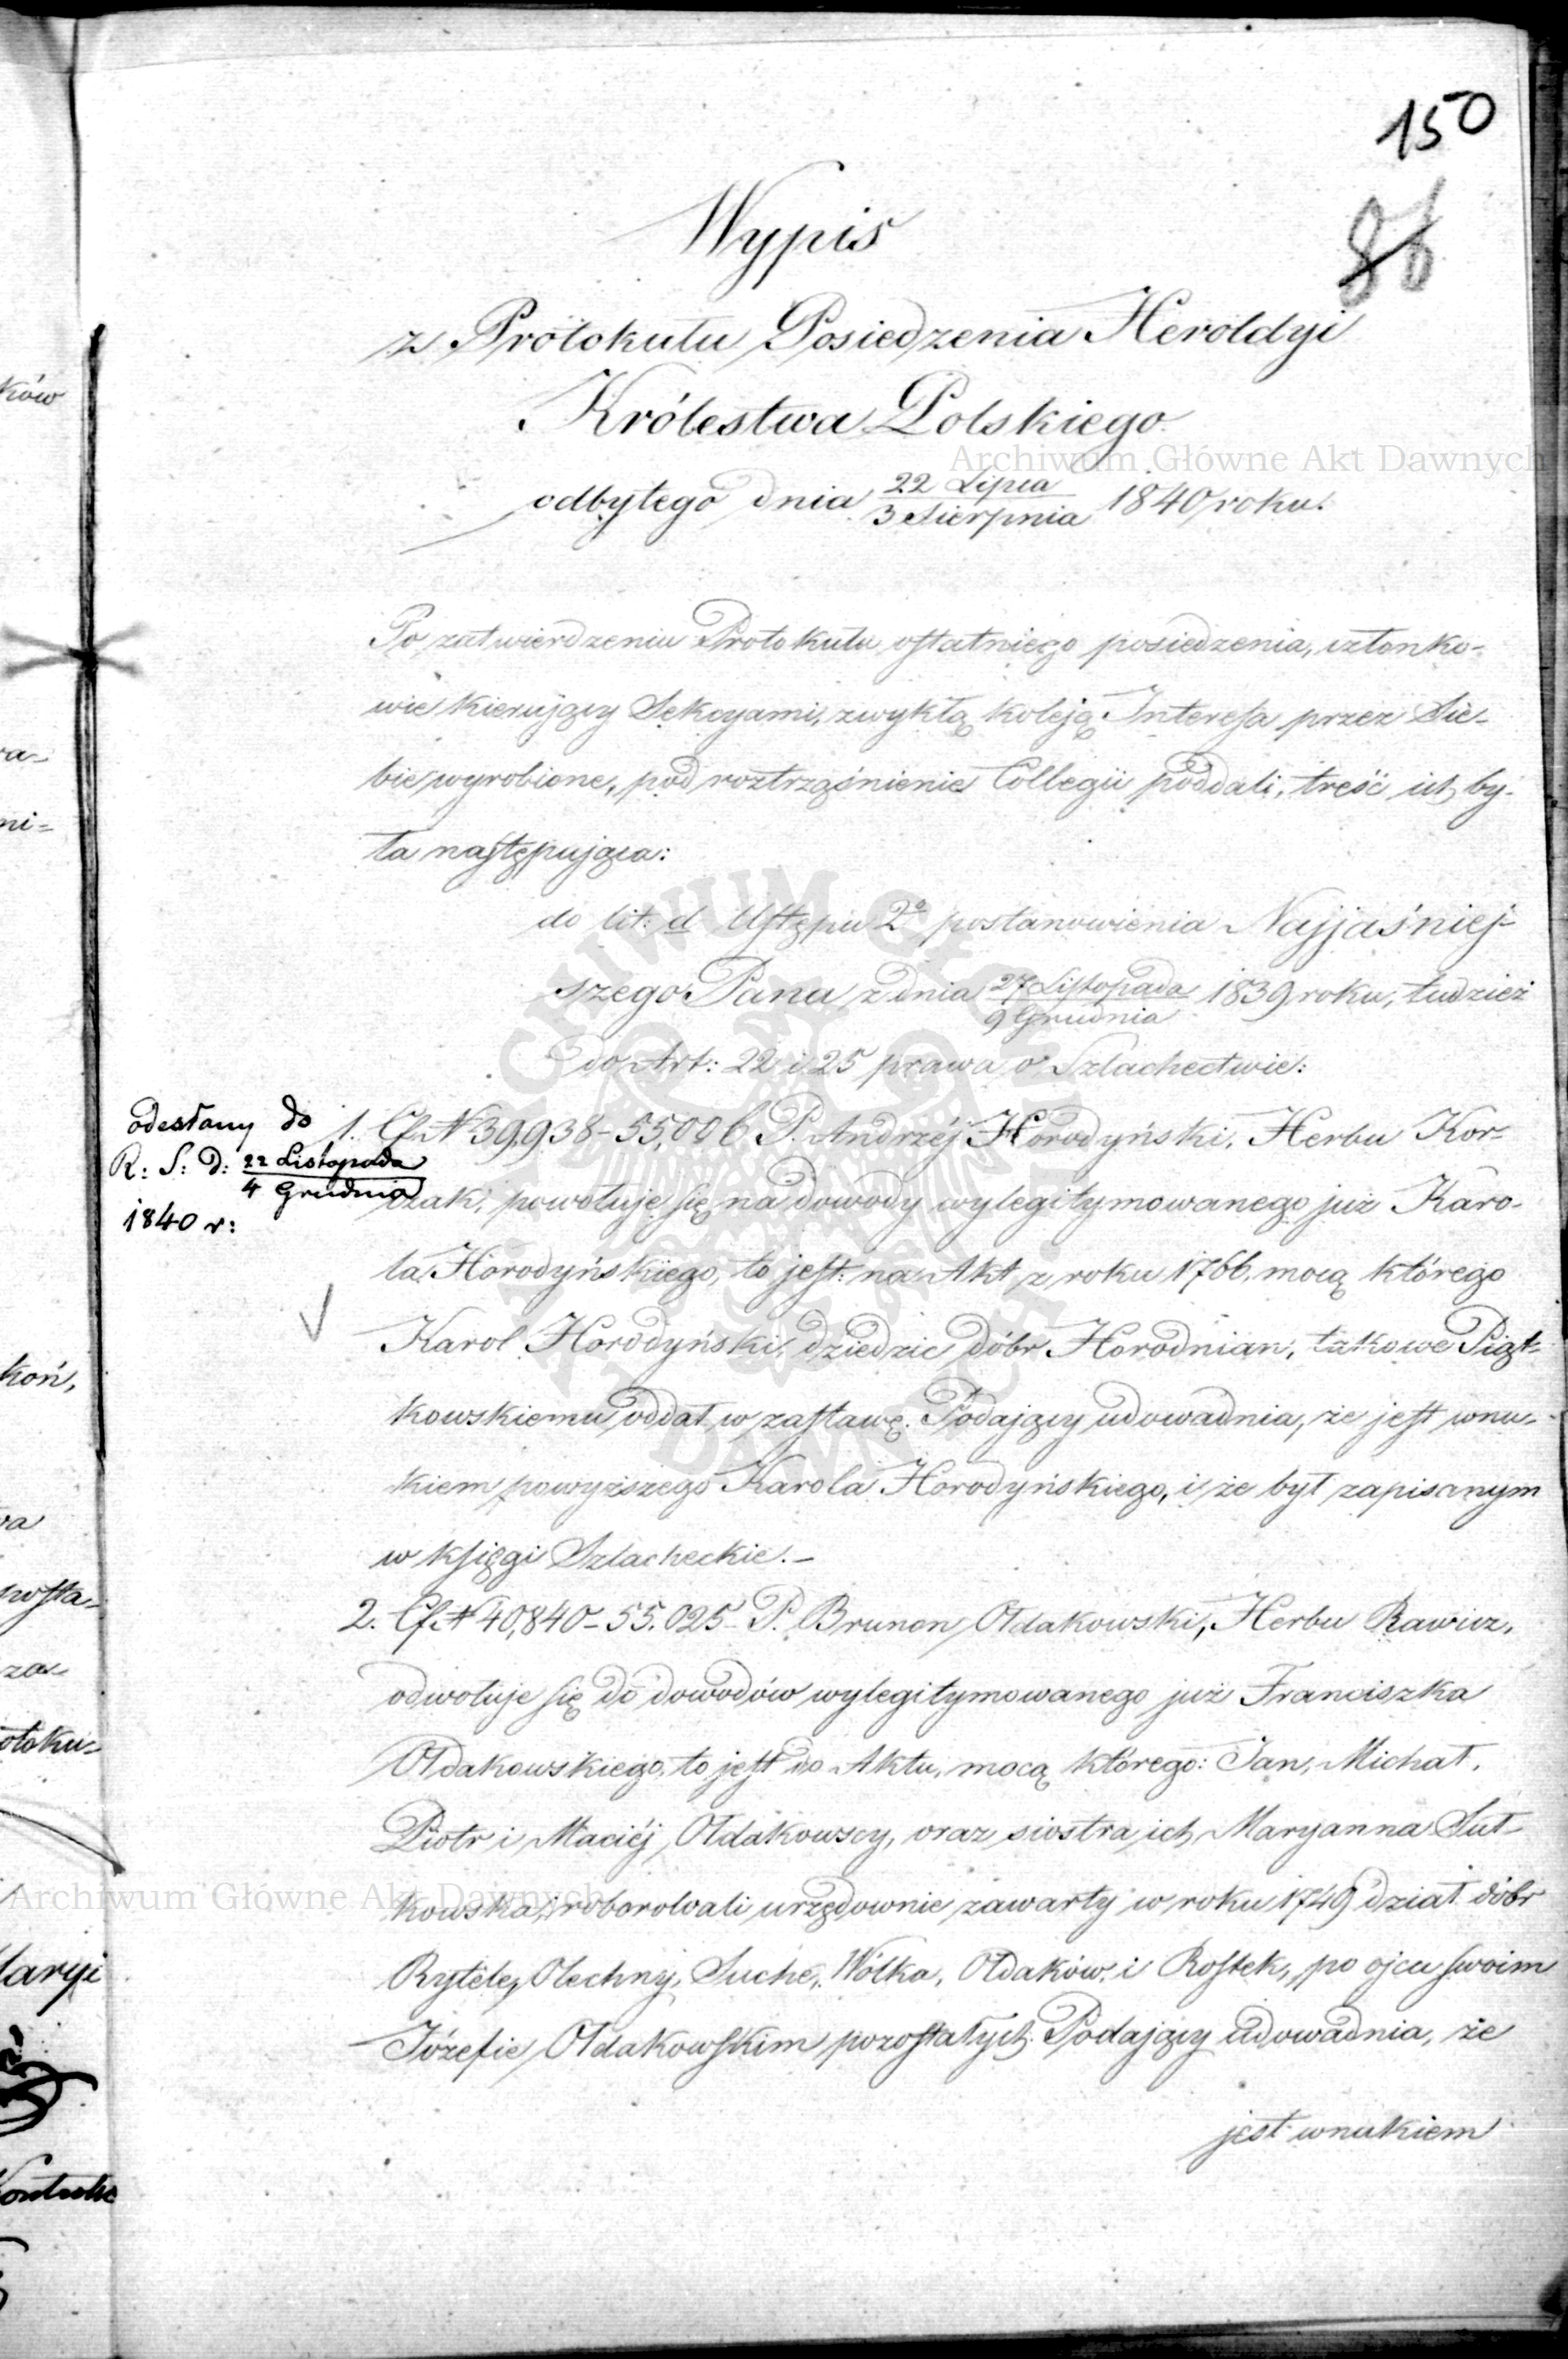 150
86
Wypis
z Protokułu Posiedzenia Heroldyi
Królestwa Polskiego
odbytego dnia 22 Lipca / 3 Sierpnia 1840 roku.
Po zatwierdzeniu Protokułu ostatniego posiedzenia, członko-
wie kierujący Sekcyami, zwykłą koleją Interesa przez Sie-
bie wyrobione, pod roztrząśnienie Collegii poddali, treść ich by-
ła następująca:
do lit: d Ustępu 2º postanowienia Najjaśniej-
szego Pana z dnia 27 Listopada / 9 Grudnia 1839 roku, tudzież
do Art: 22 i 25 prawa o Szlachectwie:
odesłany do
R: S: D: 22 Listopada / 4 Grudnia
1840 r:
1. N 39,938-55,006 P. Andrzéj Horodyński, Herbu Kor-
czak, powołuje się na dowody wylegitymowanego już Karo-
la Horodyńskiego, to jest: na Akt z roku 1766, mocą którego
Karol Horodyński, dziedzic dóbr Horodnian, takowe Piąt-
kowskiemu oddał w zastawę. Podający udowadnia, że jest wnu-
kiem powyższego Karola Horodyńskiego, i że był zapisanym
w księgi Szlacheckie.-
2. N 40,840-55.025- P. Brunon Ołdakowski, Herbu Rawicz,
odwołuje się do dowodów wylegitymowanego już Franciszka
Ołdakowskiego, to jest do Aktu, mocą którego: Jan, Michał,
Piotr i Maciéj Ołdakowscy, oraz siostra ich Maryanna Sut-
kowska, roborowali urzędownie zawarty w roku 1749 dział dóbr
Rytele, Olechny, Suche, Wólka, Ołdaków i Rostek, po ojcu swoim
Józefie Ołdakowskim pozostałych. Podający udowadnia, że
jest wnukiem
Archiwum Główne Akt Dawnych
Archiwum Główne Akt Dawnych
ARCHIWUM GŁÓWNE AKT DAWNYCH
ków
ra-
ni-
koń,
wa
za-
otoku-
Maryi